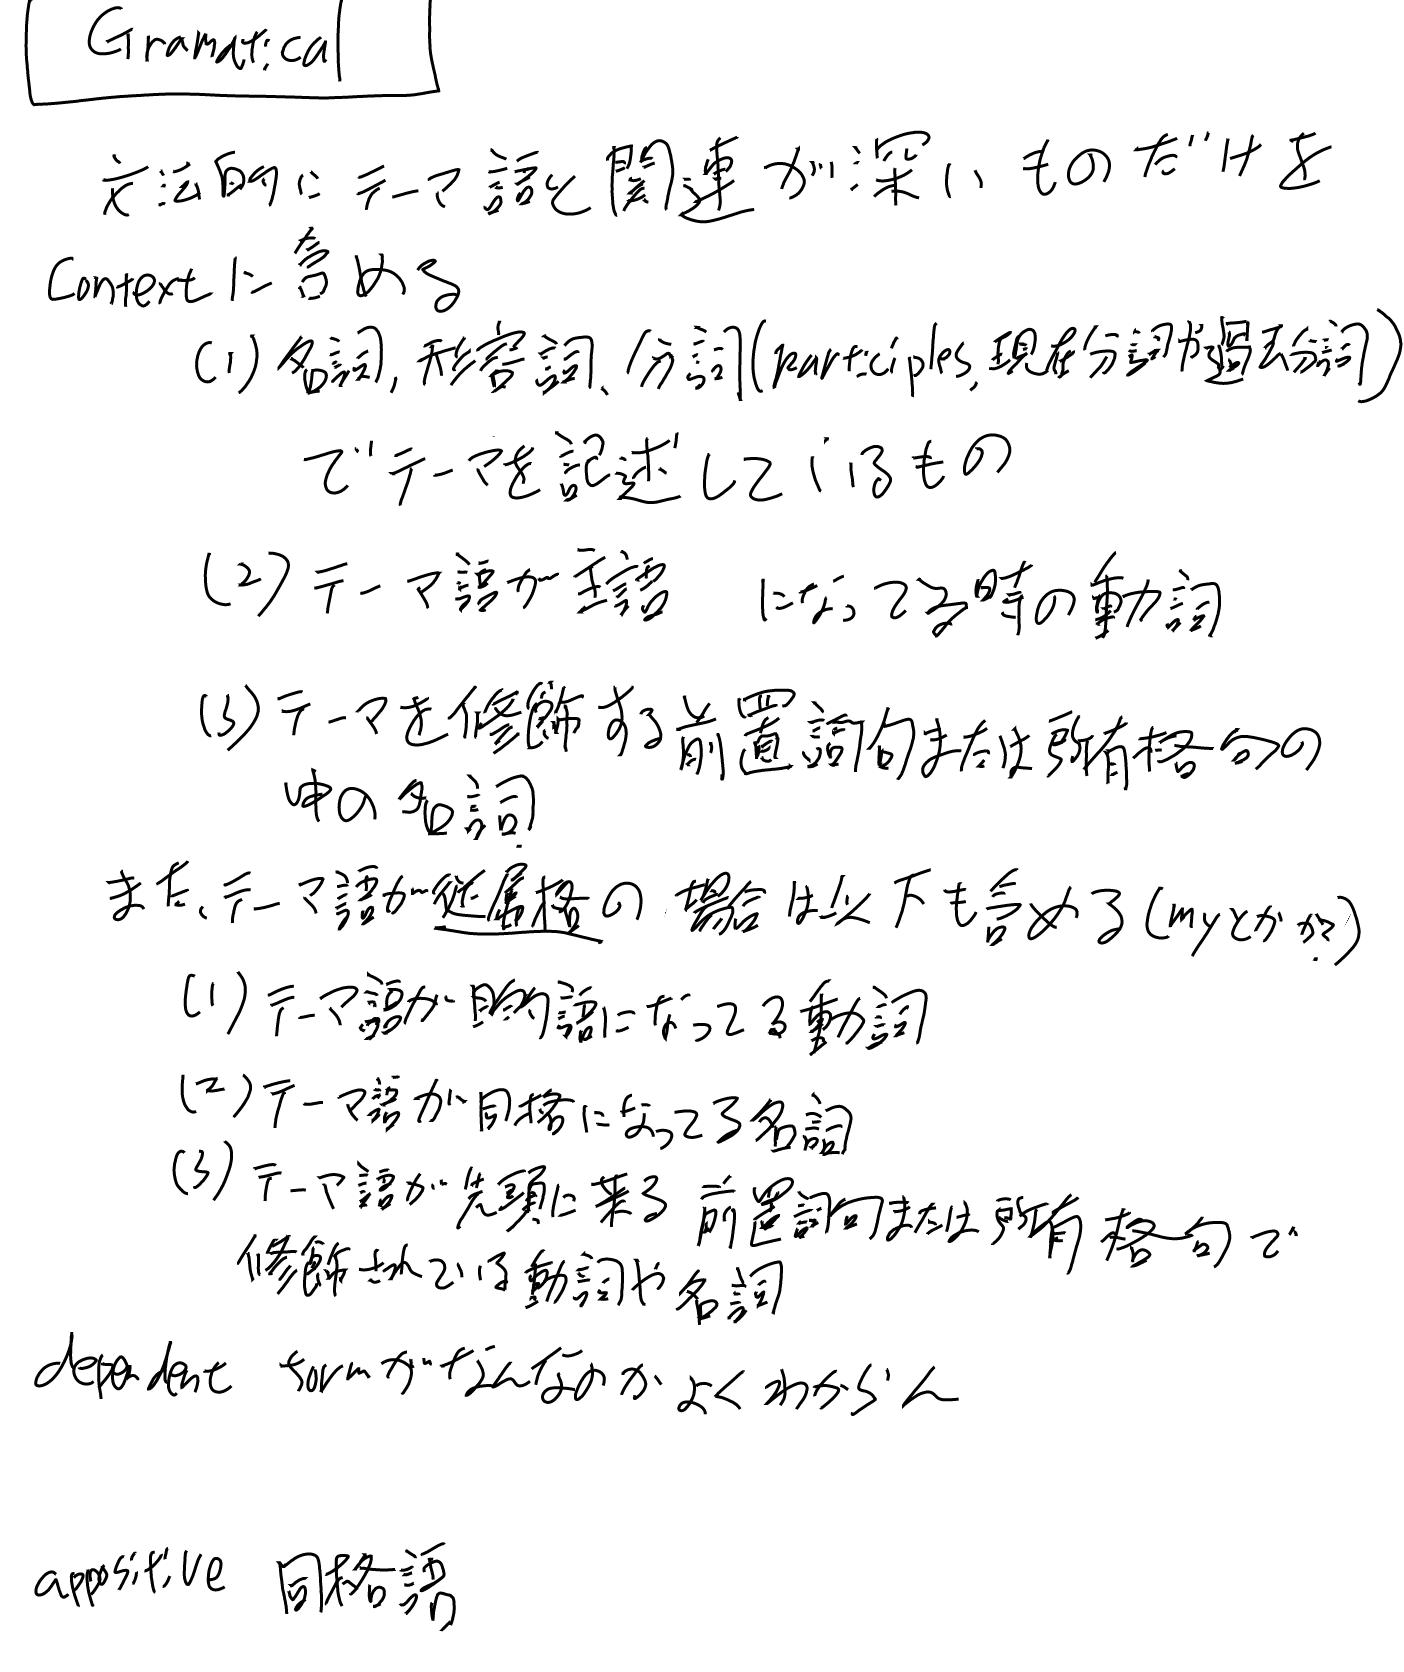 Gramatical
文法的にテーマ語と関連が深いものだけを
Contextに含める
(1) 名詞, 形容詞、分詞(participles, 現在分詞や過去分詞)
でテーマを記述しているもの
(2) テーマ語が主語 になってる時の動詞
(3) テーマを修飾する前置詞句または所有格句の
中の名詞
また、テーマ語が従属格の場合は以下も含める(myとかか?)
(1) テーマ語が目的語になってる動詞
(2) テーマ語が同格になってる名詞
(3) テーマ語が先頭に来る前置詞句または所有格句で
修飾されている動詞や名詞
dependent formがなんなのかよくわからん
appositive 同格語